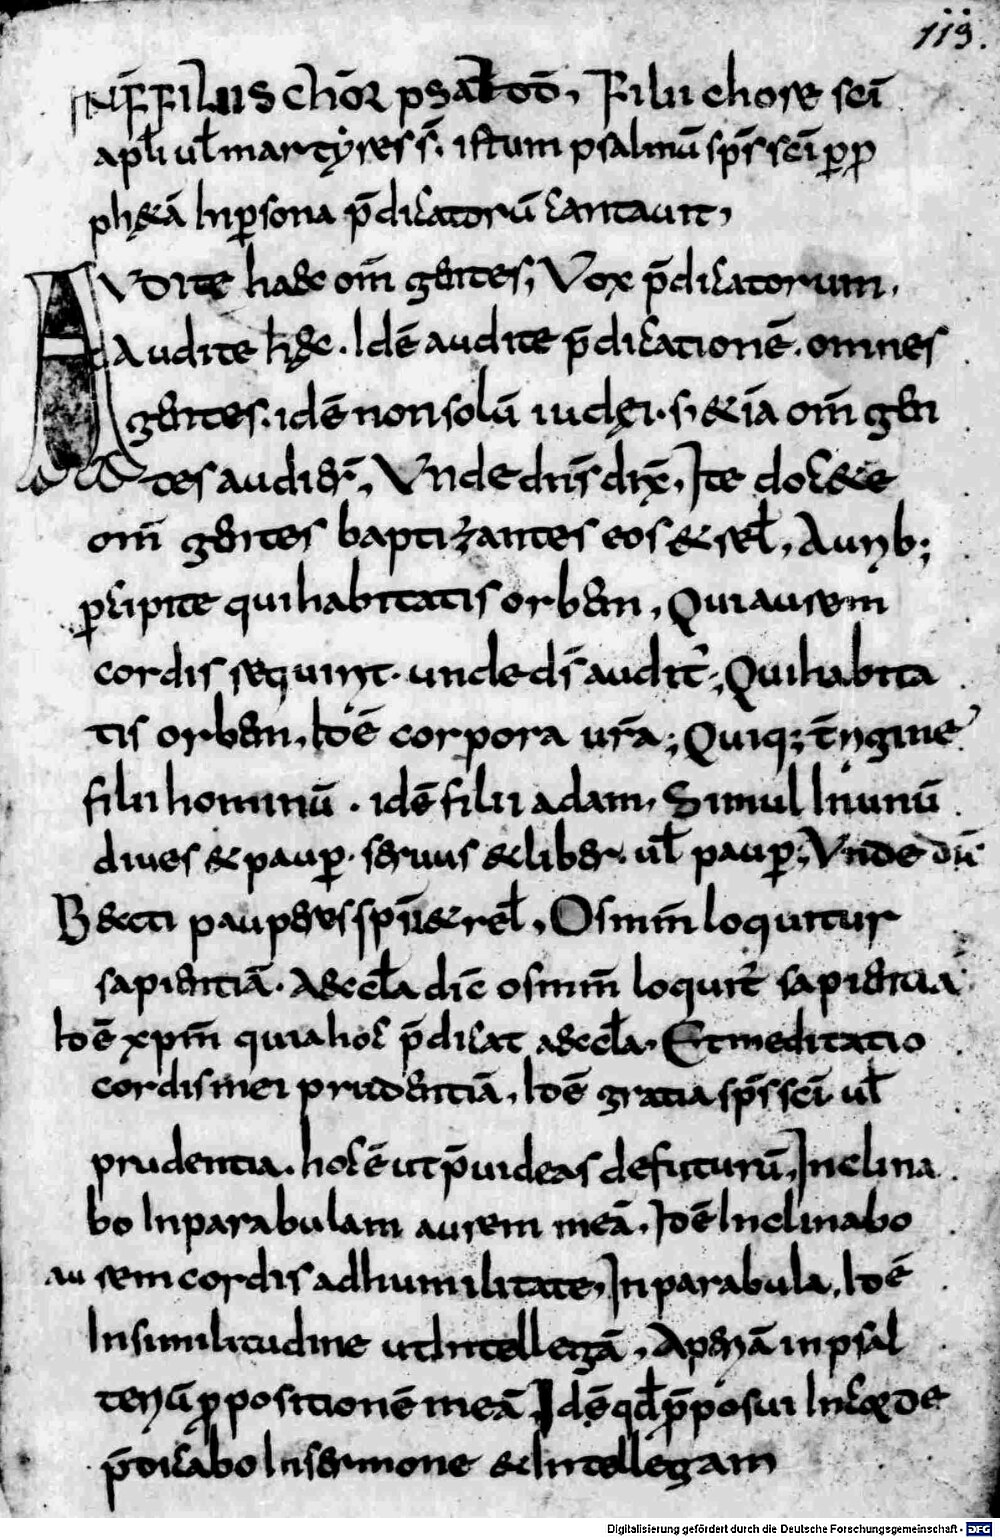 113.
INF̄ FILIIS chōR psalt dd̄, Filii chore sc̄i
apl̄i ul̄ martyres s̄. istum psalmū sp̄s sc̄i ꝑ ꝓ
ph&ā In ꝑsona p̄dicatorū cantauit,
AVDITE haec om̄ gentes, Vox p̄dicatorum.
Audite hęc. Idē audite p̄dicationē. omnes
gentes. idē non solū iudęi. s; &iā om̄ gen
tes audier̄, Vnde dn̄s dix̄, Ite doc&e
om̄ gentes baptizantes eos & rel̄, Aurib;
ꝑcipite qui habitatis orbem, Qui aurem
cordis sequint. unde dś audit̄; Qui habita
tis orbem, Id ē corpora ur̄a; Quiq; t̄rigine
filii hominū . idē filii adam, Simul In unū
diues & pauꝑ. seruus & liber. ul̄ pauꝑ; Vnde dic̄
Beati pauperes spū & rel̄, Os mm̄ loquitur
sapientiā. Aeccl̄a dic̄ os mm̄ loquit̄ sapientiā
Id ē xp̄m quia hoc p̄dicat aeccl̄a. Et meditatio
cordis mei prudentiā, Id ē gratia sp̄s sc̄i ul̄
prudentia. hoc ē ut p̄uideas de futurū, Inclina
bo In parabulam aurem meā. Id ē Inclinabo
aurem cordis ad humilitate, In parabula, Id ē
In similitudine ut Intellegā, Aperiā in psal
teriū ꝓpositionē meā Idē qd̄ p̄posui In corde
p̄dicabo In sermone & Intellegam
Digitalisierung gefördert durch die Deutsche Forschungsgemeinschaft - DFG